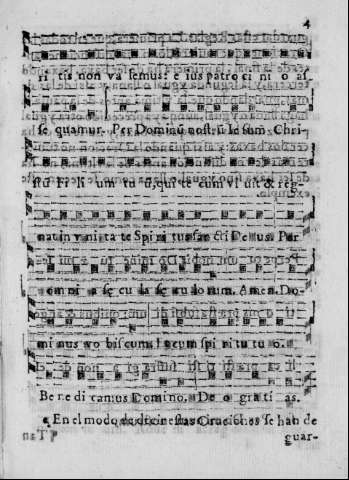 4
ri tis non va lemus: e ius patro ci ni o as-
se quamur. Per Dominũ nostrũ Iesum Chri-
stũ Fi li um tu ũ, qui te cum vi uit & reg-
nat in v ni ta te Spi ri tus san cti De us. Per
om ni a sę cu la sę cu lo rum. A men. Do-
mi nus vo bis cum. Et cum spi ri tu tu o.
Be ne di camus Domino. De o gra ti as.
En el modo de dezir estas Oraciones se han de
guar-